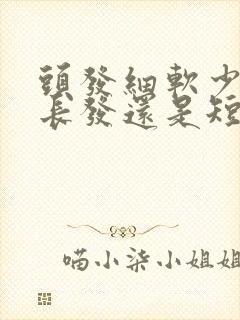 頭發細軟少
長發還是短
喵小柒小姐姐